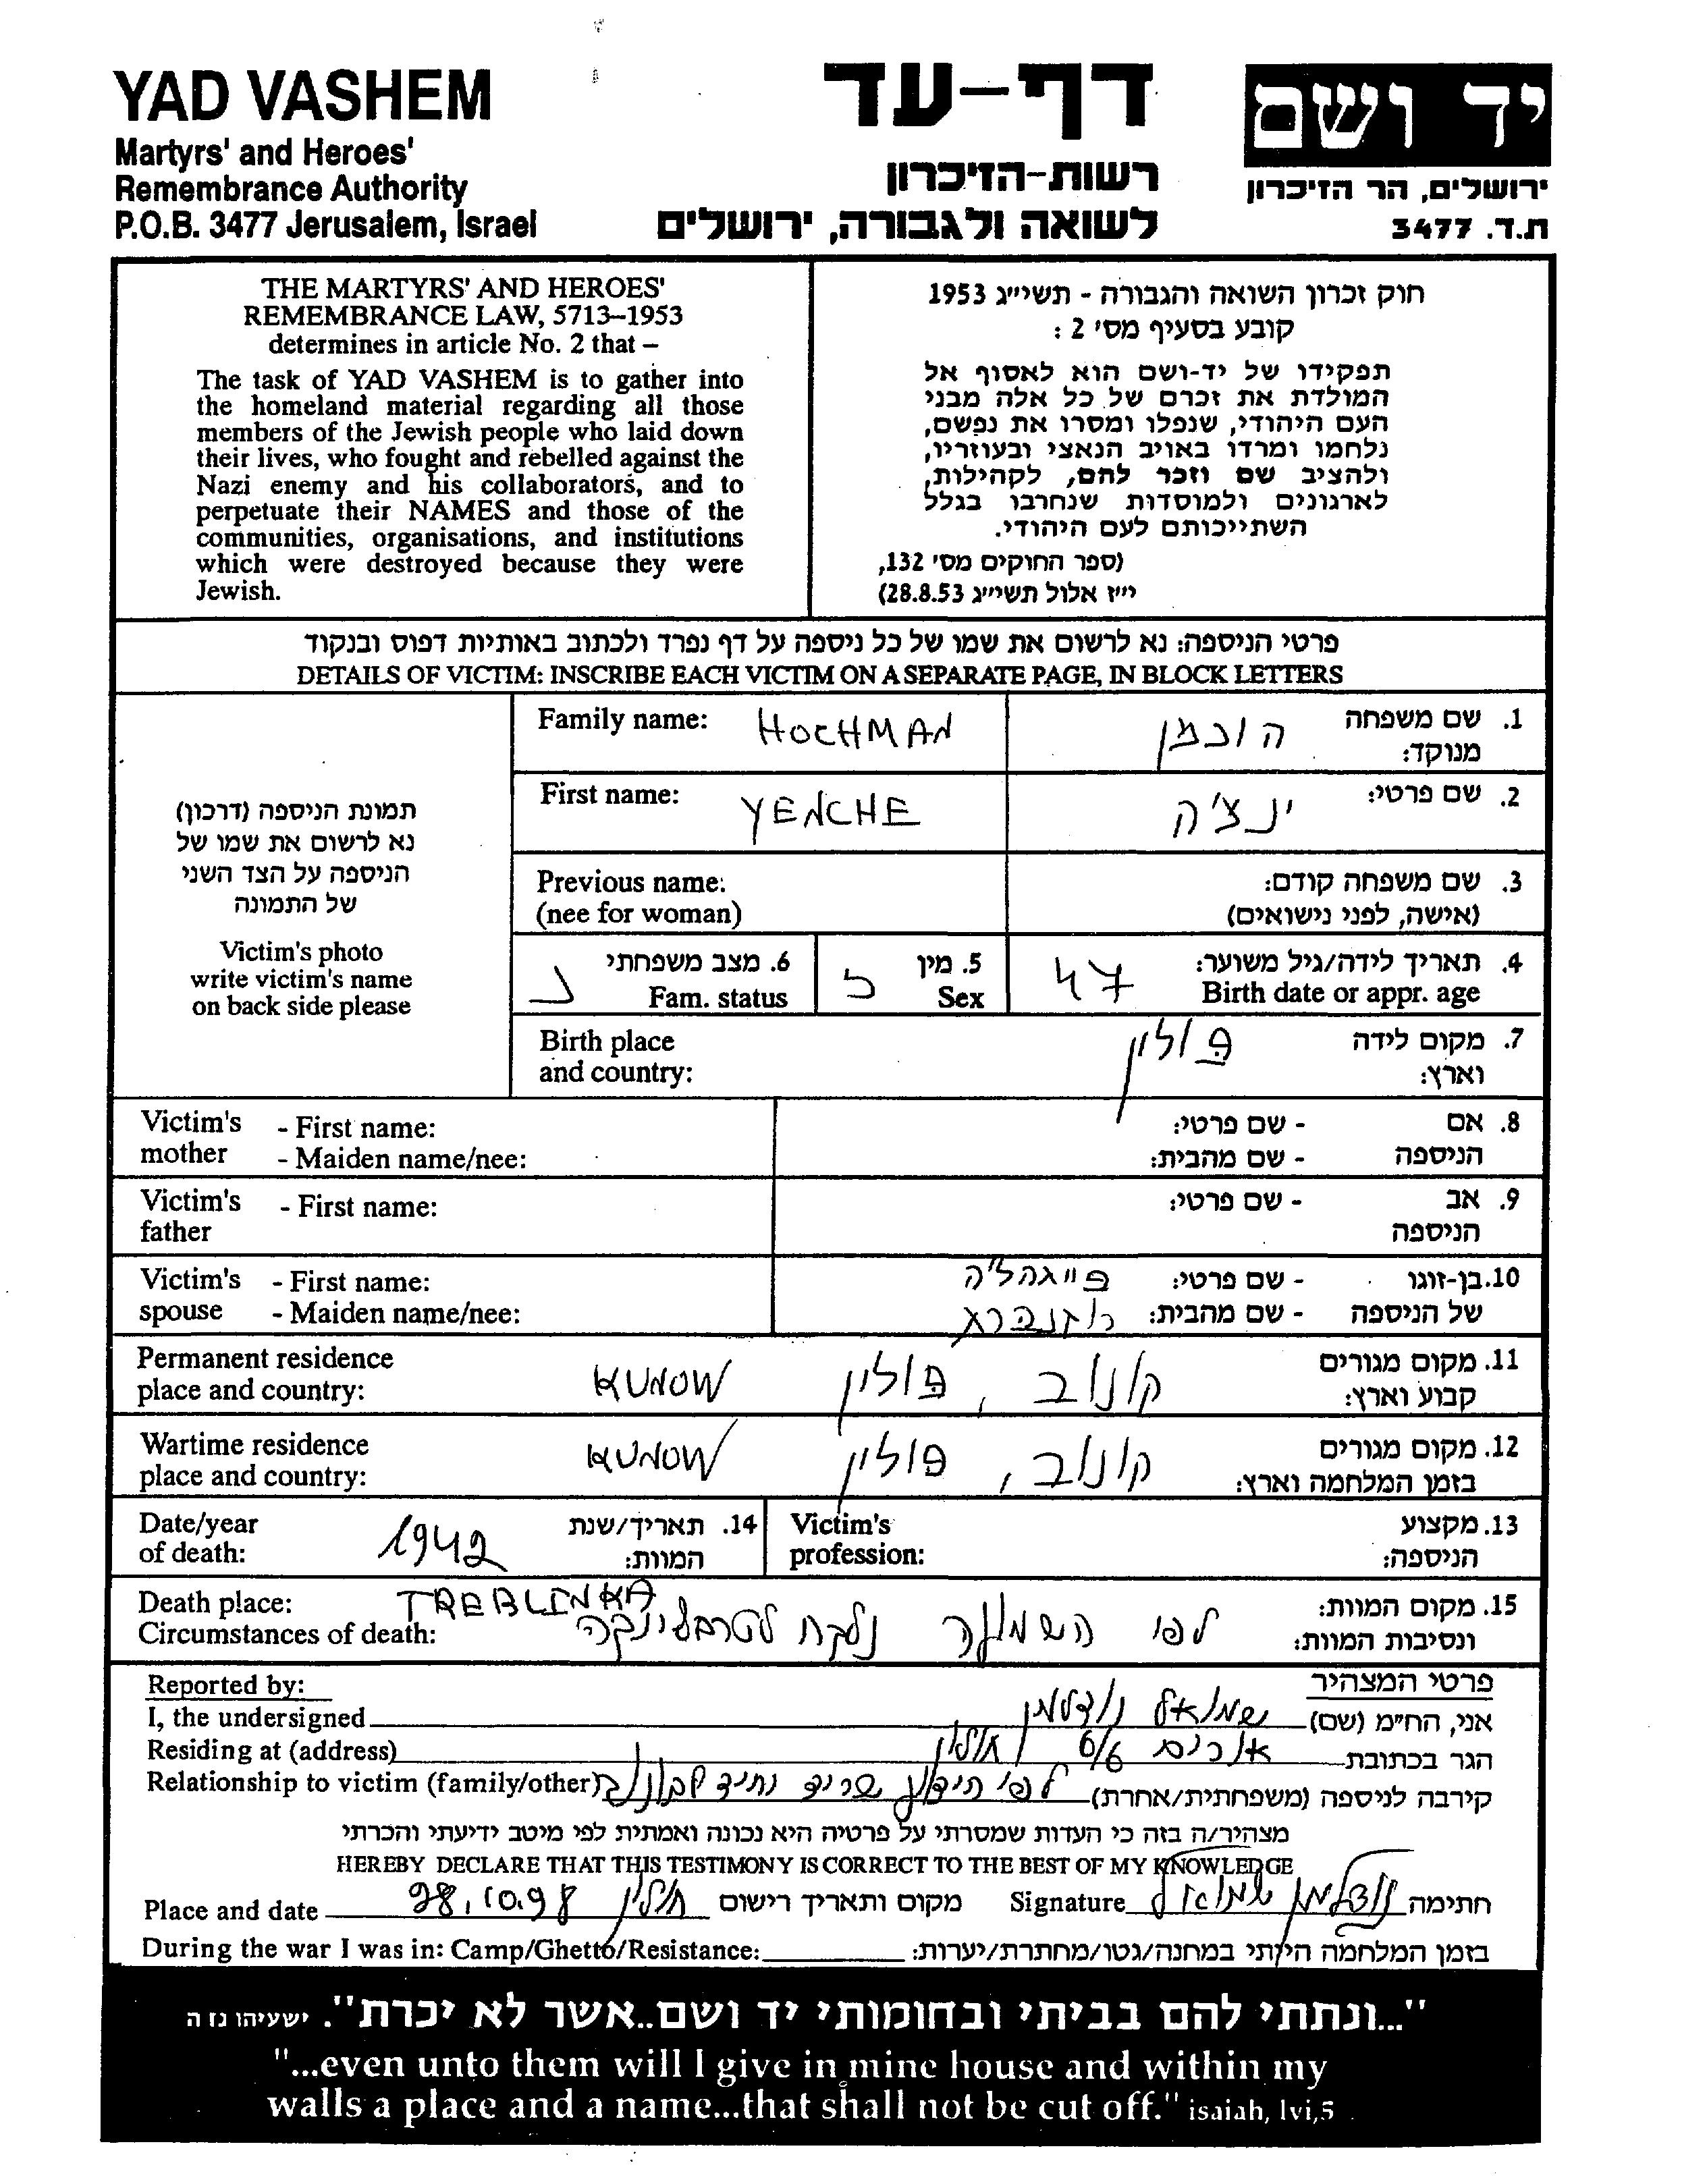 YAD VASHEM
Martyrs' and Heroes'
Remembrance Authority
P.O.B. 3477 Jerusalem, Israel
דף-עד
רשות-הזיכרון
לשואה ולגבורה, ירושלים
יד ושם
ירושלים, הר הזיכרון
ת.ד. 3477
THE MARTYRS' AND HEROES'
REMEMBRANCE LAW, 5713–1953
determines in article No. 2 that –
The task of YAD VASHEM is to gather into
the homeland material regarding all those
members of the Jewish people who laid down
their lives, who fought and rebelled against the
Nazi enemy and his collaborators, and to
perpetuate their NAMES and those of the
communities, organisations, and institutions
which were destroyed because they were
Jewish.
חוק זכרון השואה והגבורה - תשי"ג 1953
קובע בסעיף מס' 2 :
תפקידו של יד-ושם הוא לאסוף אל
המולדת את זכרם של כל אלה מבני
העם היהודי, שנפלו ומסרו את נפשם,
נלחמו ומרדו באויב הנאצי ובעוזריו,
ולהציב שם וזכר להם, לקהילות,
לארגונים ולמוסדות שנחרבו בגלל
השתייכותם לעם היהודי.
(ספר החוקים מס' 132,
י"ז אלול תשי"ג 28.8.53)
פרטי הניספה: נא לרשום את שמו של כל ניספה על דף נפרד ולכתוב באותיות דפוס ובנקוד
DETAILS OF VICTIM: INSCRIBE EACH VICTIM ON A SEPARATE PAGE, IN BLOCK LETTERS
תמונת הניספה (דרכון)
נא לרשום את שמו של
הניספה על הצד השני
של התמונה
Victim's photo
write victim's name
on back side please
Family name: HOCHMAN הוכמן 1. שם משפחה
מנוקד:
First name: YENCHE ינצ'ה 2. שם פרטי:
Previous name: 3. שם משפחה קודם:
(nee for woman) (אישה, לפני נישואים)
6. מצב משפחתי 5. מין 4. תאריך לידה/גיל משוער:
Fam. status נ Sex ז 47 Birth date or appr. age
Birth place פולין 7. מקום לידה
and country: וארץ:
Victim's - First name: - שם פרטי: 8. אם
mother - Maiden name/nee: - שם מהבית: הניספה
Victim's - First name: - שם פרטי: 9. אב
father הניספה
Victim's - First name: פייגהל'ה - שם פרטי: 10. בן-זוגו
spouse - Maiden name/nee: - שם מהבית: של הניספה
Permanent residence KUNOW קונוב, פולין 11. מקום מגורים
place and country: קבוע וארץ:
Wartime residence KUNOW קונוב, פולין 12. מקום מגורים
place and country: בזמן המלחמה וארץ:
Date/year 1942 14. תאריך/שנת Victim's 13. מקצוע
of death: המוות: profession: הניספה:
Death place: TREBLINKA 15. מקום המוות:
Circumstances of death: לפי השמועה נלקח לטרבלינקה ונסיבות המוות:
Reported by: פרטי המצהיר
I, the undersigned שמואל ויצלמן אני, הח"מ (שם)
Residing at (address) 6/6 חולון הגר בכתובת
Relationship to victim (family/other) לפי הידוע שריד יחיד קרבה לניספה (משפחתית/אחרת)
מצהיר/ה בזה כי העדות שמסרתי על פרטיה היא נכונה ואמתית לפי מיטב ידיעתי והכרתי
HEREBY DECLARE THAT THIS TESTIMONY IS CORRECT TO THE BEST OF MY KNOWLEDGE
Place and date 28.10.98 חולון מקום ותאריך רישום Signature ויצלמן שמואל חתימה
During the war I was in: Camp/Ghetto/Resistance: בזמן המלחמה הייתי במחנה/גטו/מחתרת/יערות:
"...ונתתי להם בביתי ובחומותי יד ושם..אשר לא יכרת". ישעיהו נז ה
"...even unto them will I give in mine house and within my
walls a place and a name...that shall not be cut off." isaiah, lvi,5